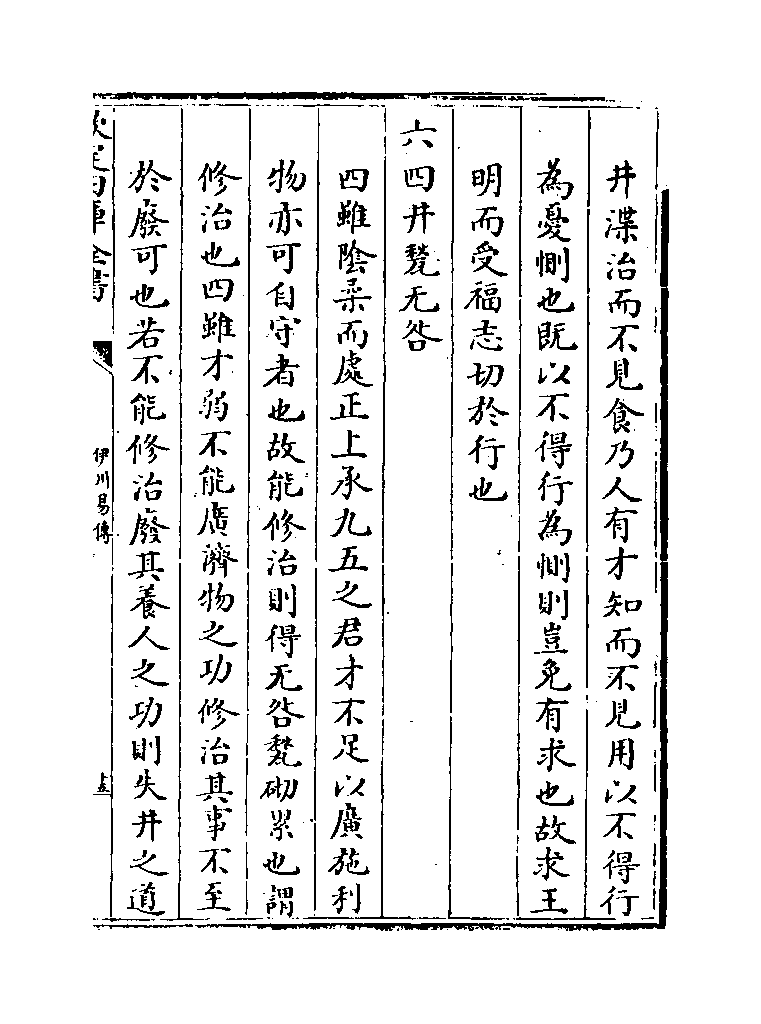 井渫治而不見食乃人有才知而不見用以不得行
為憂惻也既以不得行為惻則豈免有求也故求王
明而受福志切於行也
六四井甃无咎
四雖陰柔而處正上承九五之君才不足以廣施利
物亦可自守者也故能修治則得无咎甃砌累也謂
修治也四雖才弱不能廣濟物之功修治其事不至
於廢可也若不能修治廢其養人之功則失井之道
欽定四庫全書
伊川易傳